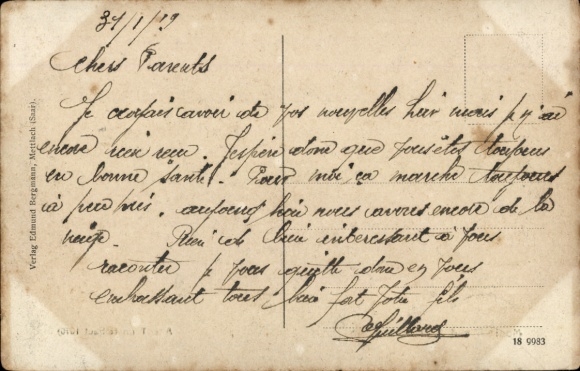 31/1/19
Chers Parents
Je croyais avoir de vos nouvelles hier mais je n'ai
encore rien reçu. J'espère donc que vous êtes toujours
en bonne santé. Pour moi, ça marche toujours
à peu près. aujourd'hui nous avons encore de la
neige. Rien de bien interessant à vous
raconter je vous quitte donc en vous
embrassant tous bien fort votre fils
Verlag Edmund Bergmann, Mettlach (Saar).
18 9983